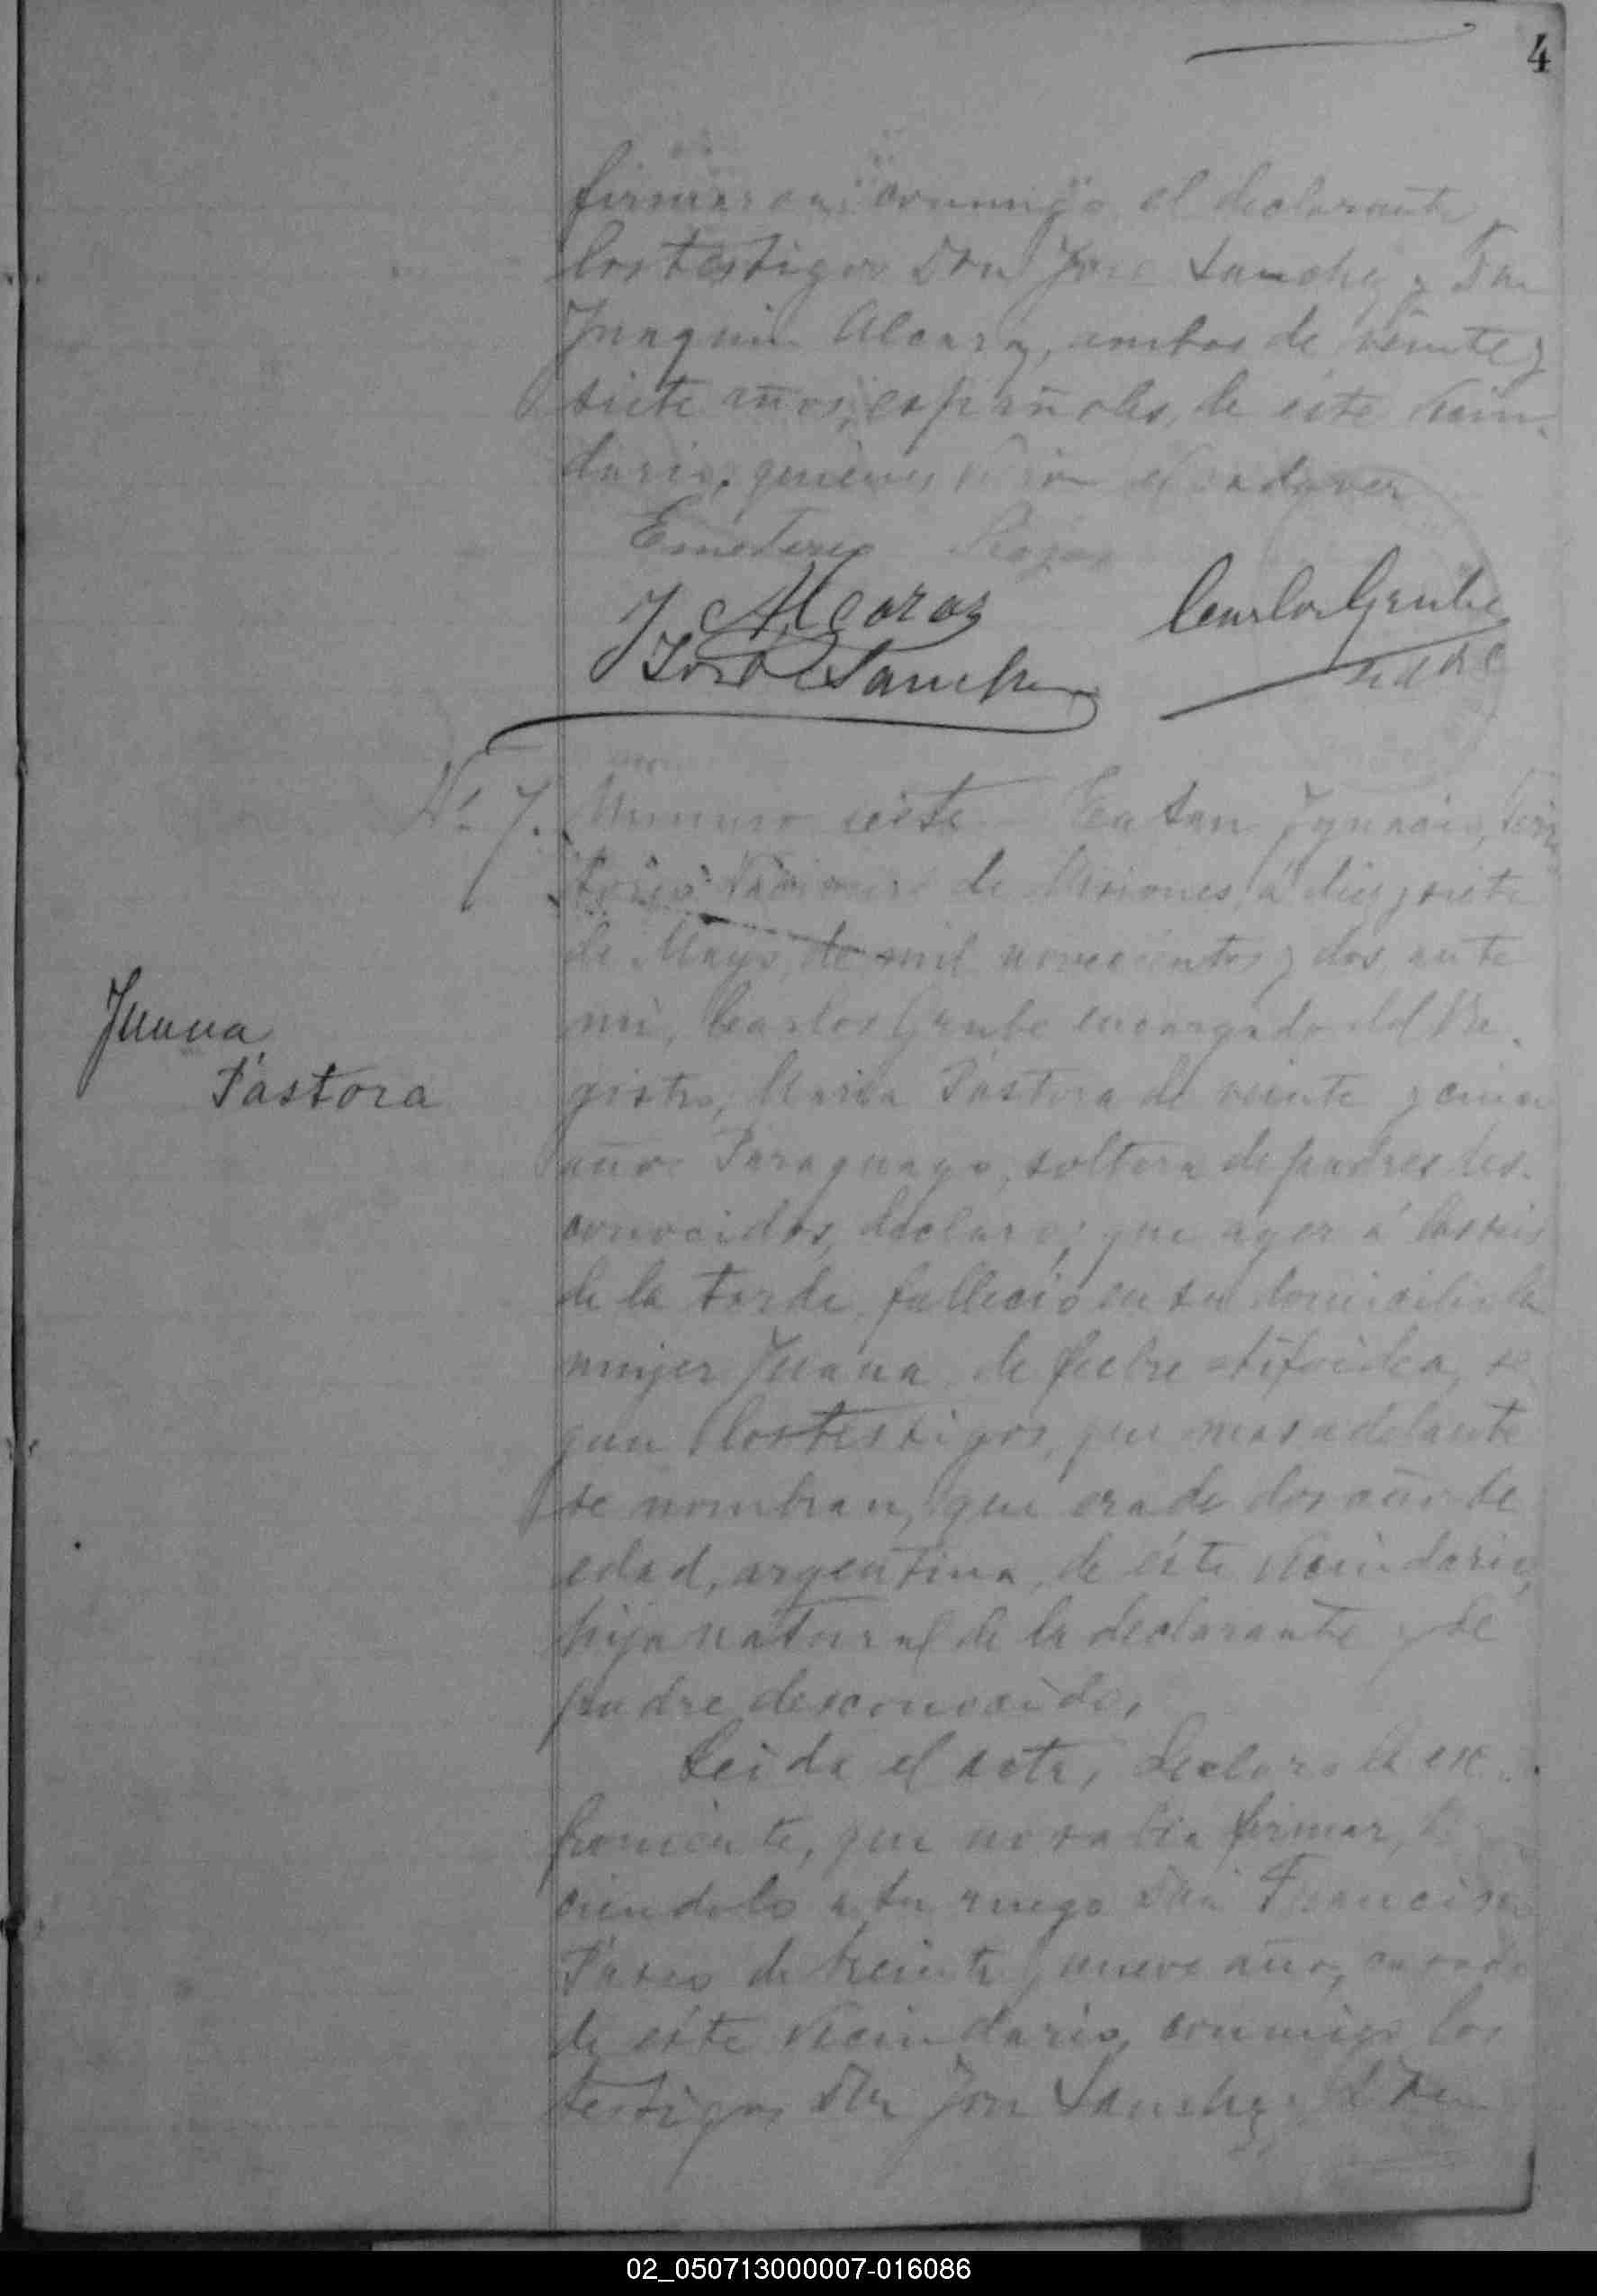 4
firmaron conmigo el declarante
los testigos Don Jose Sanchez y Don
Juaquin Alcaraz, ambos de veinte y
siete años, españoles, de este vecin-
dario, quienes vieron el cadaver
Emeterio Rojas
J Alcaraz
Carlos Grube
José Sanchez
Nº 7. Numero siete - En San Ygnacio, Terri
torio Nacional de Misiones, á diez y siete
de Mayo, de mil novecientos y dos, ante
mi, Carlos Grube encargado del Re-
gistro, Maria Pastora de veinte y cinco
Juana
Pastora
años Paraguaya, soltera de padres des-
conocidos, declaro; que ayer á las seis
de la tarde, fallecio en su domicilio la
mujer Juana, de fiebre tifoidea, se
gun los testigos, que mas adelante
se nombran, que era de dos años de
edad, argentina, de éste vecindario,
hija natural de la declarante y de
padre desconocido.
Leida el acta, declaro la ex-
ponente, que no sabia firmar,
ciendolo a su ruego Don Francisco
de treinta y nueve años, casado
de éste vecindario, conmigo los
testigos Don Jose Sanchez y Don
02_050713000007-016086